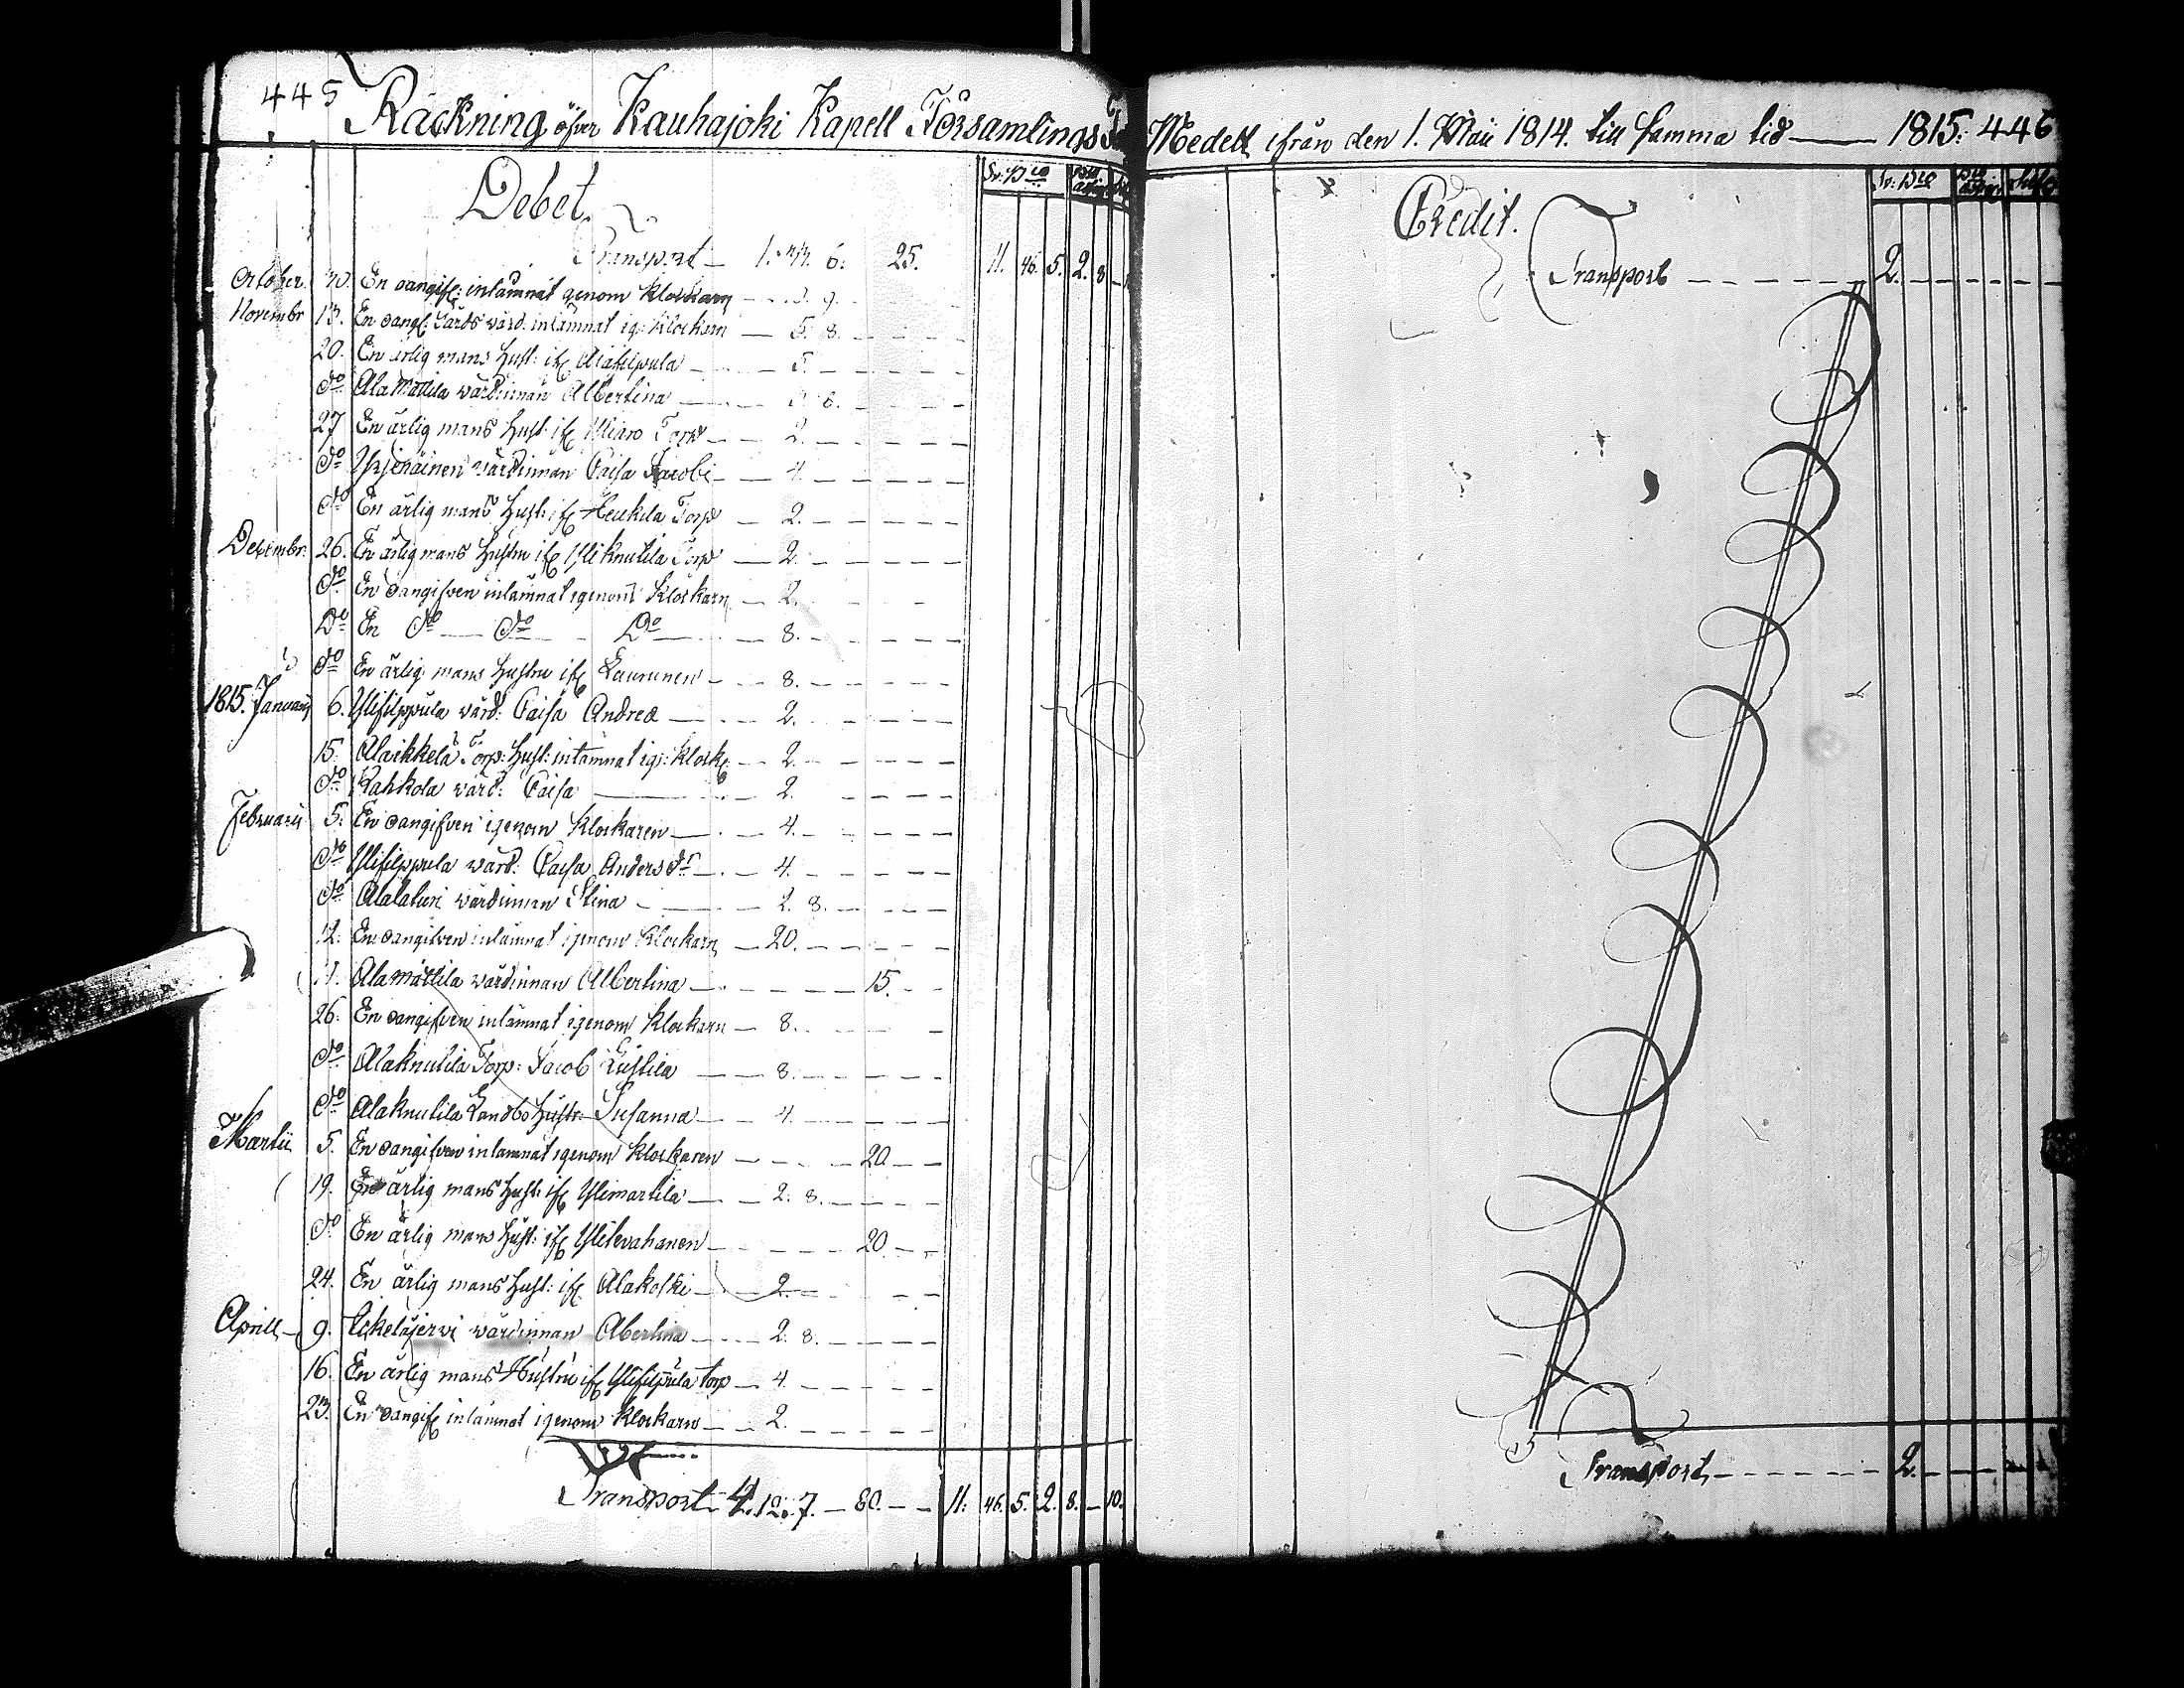 445 Räckning öfver Kauhajoki Kapell Församlings
Debet.
Sv: Bco
Transport — 1. 6. 25. 11. 46. 5. 2. 8 —
October. 30. En oangif: inlämnat genom Klockarn — 9.
Novembr 13. En oangf: Gårds värd: inlämnat ig: Klockarn — 5. 8.
20. En ärlig mans Hust: if — 5.
do Ala Mattila värdinnan Albertina — 8.
27 En ärlig mans Hust: if Torp — 2.
do Yrjenäinen värdinnan Caisa Jacobi — 4.
do En ärlig mans Hust: if Heickila Torp — 2.
Decembr. 26. En ärlig mans Hustru if Yliknutila Torp — 2.
do En oangifven inlämnat igenom Klockarn — 2.
Do En do — do — Do — 8.
do En ärlig mans Hustru if Laurunen — 8.
1815. Januarij 6. Ylifilppula värd: Caisa Andrea — 2.
15. Torp: Hust: inlämnat ig: Klock — 2.
do Kahkola värd: Caisa — 2.
Februarii 5. En oangifven igenom Klockaren — 4.
do Ylifilppula värd: Caisa Anders dr — 4.
do Alaluri värdinnan Stina — 2. 8.
12. En oangifven inlämnat igenom Klockarn — 20.
Ala Mattila värdinnan Albertina — 15.
26. En oangifven inlämnat igenom Klockarn — 8.
do Alaknutila Torp: Jacob — 8.
do Alaknutila Landbo Hustr: Susanna — 4.
Martii 5. En oangifven inlämnat igenom Klockaren — 20
19. En ärlig mans Hust: if Ylimartila — 2. 8.
do En ärlig mans Hust: if Ylilevahanen — 20
24. En ärlig mans Hust: if Alakoski — 2.
Aprill 9. värdinnan Abertina — 2. 8.
16. En ärlig mans Hustru if Ylifilpula torp — 4.
23. En oangif inlämnat igenom Klockarn — 2.
Transport 4. 12. 7. — 80. — 11. 46. 5. 2. 8. — 10.
Medell ifrån den 1. Maii 1814. till samma tid — 1815. 446
Credit.
Sv: Bco
Transport — 2.
Transport — 2.